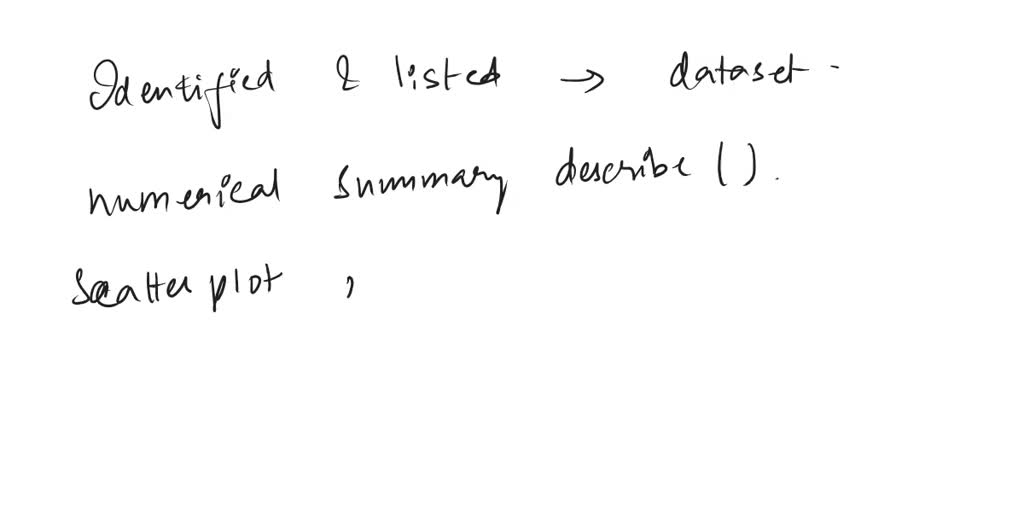 Identified & listed → dataset -
numerical summary describe ( ) .
Scatter plot ,